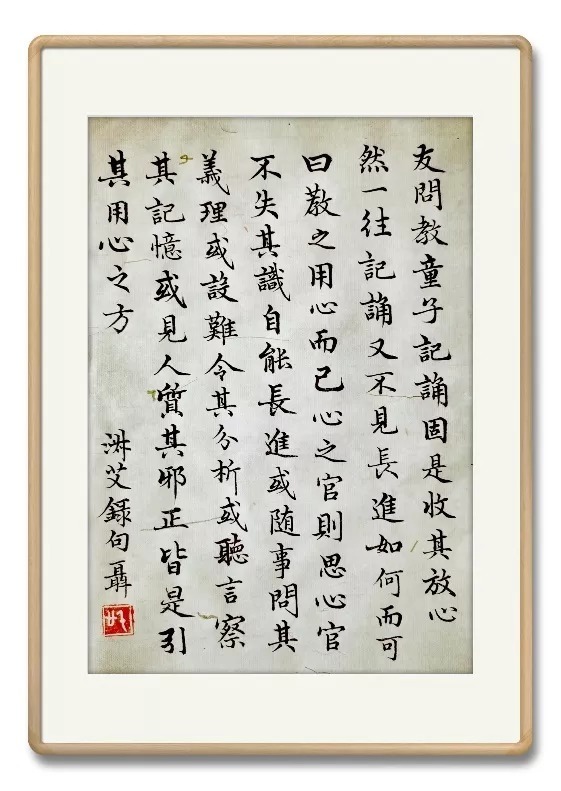 友問教童子記誦固是收其放心
然一往記誦又不見長進如何而可
曰教之用心而已心之官則思心官
不失其識自能長進或随事問其
義理或設難令其分析或聽言察
其記憶或見人質其邪正皆是引
其用心之方
艾錄句聶